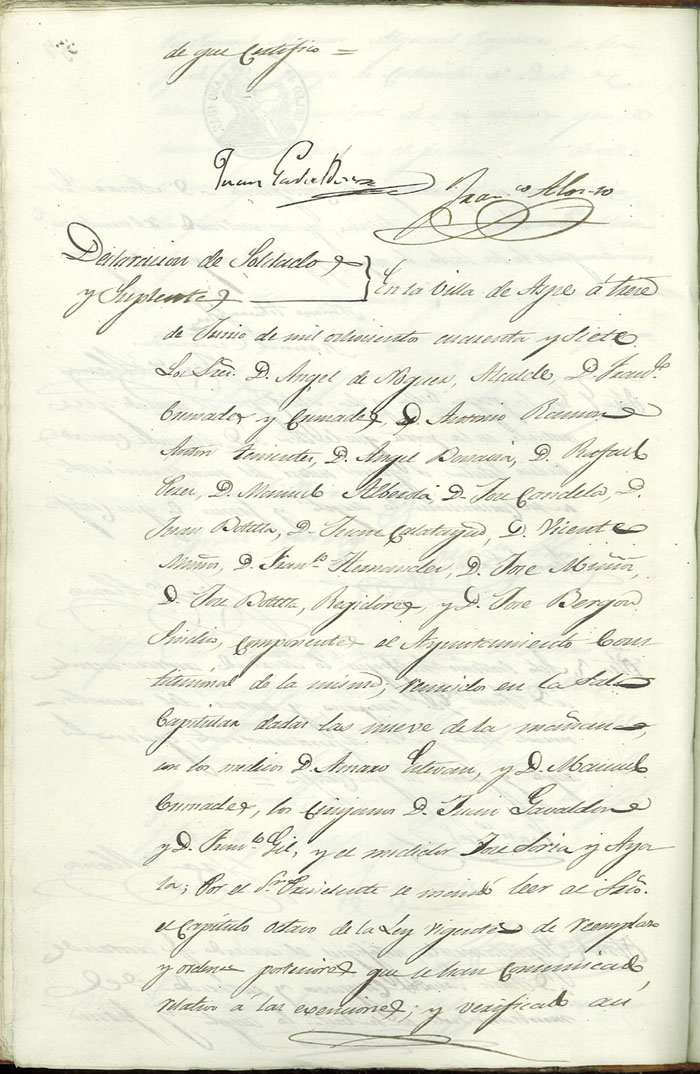 de que Certifico =
Fran.co Alonso
Declaracion de Soldados
y Suplentes
En la Villa de Aspe á trece
de Junio de mil ochociento cuarenta y siete
Los Sres. D. Angel de Alcalde, D. Fran.co
Cremades y Cremades, D. Antonio Ramon
Tenientes, D. Angel D. Rafael
Perez, D. Manuel Alberola D. Jose Candela, D.
Juan Botella, D. Juan Calatayud, D. Vicente
Muñoz, D. Fran.co Hernandez, D. Jose Muñoz,
D. Jose Botella, Regidores, y D. Jose
Sindico, componentes el Ayuntamiento Cons-
titucional de la misma; reunidos en la Sala
Capitular dadas las nueve de la mañana,
con los medicos D. Amaro y D. Manuel
Cremades, los Cirujanos D. Juan Gavaldon
y D. Fran.co Gil, y el medidor Jose Soria y Aya-
la; Por el Sr. Presidente se mandó leer al Srio.
el Capitulo octavo de la Ley vigente de reemplazo
y ordenes posteriores que se han comunicado,
relativo á las exenciones; y verificado asi